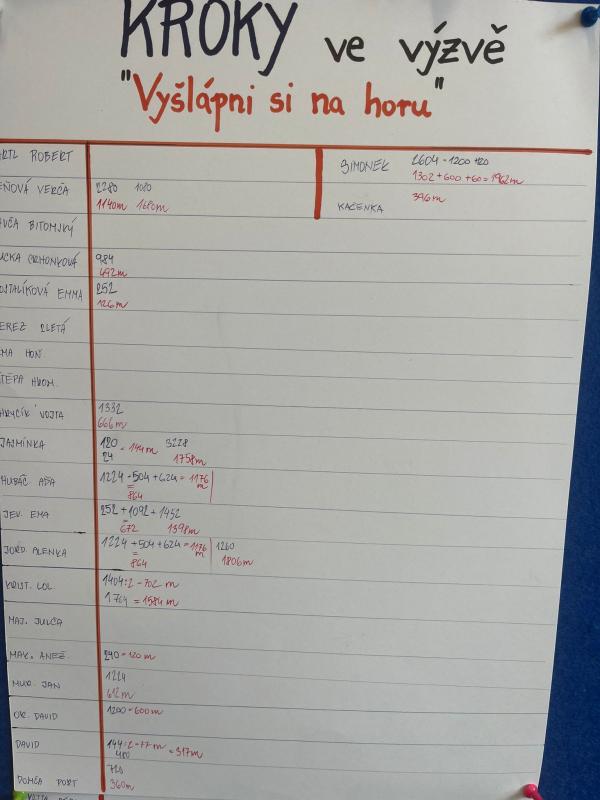 KROKY ve výzvě
"Vyšlápni si na horu"
RTL ROBERT
SIMONEK 2604 - 1200 + 120
1302 + 600 + 60 = 1962m
KAČENKA 396m
EŇOVÁ VERČA 2280 1080
1140m 1680m
BITOMSKÝ
984
492m
OJTALÍKOVÁ EMMA 252
126m
EREZ
MA HON.
TĚPA HROM.
HRYČÍK VOJTA 1332
666m
JAJMÍNKA 120 3228
24 = 144m 1758m
HUBÁČ 1224 - 504 + 624 = 1176 m
= 864
JEV. EMA 252 + 1092 + 1452
= 672 1398m
JORD. ALENKA 1224 + 504 + 624 = 1176 m 1260
= 864 1806m
KRIST. LOL 1404:2 - 702 m
1764 = 1584 m
MAJ. JULČA
MAK. ANEŽ. 240 = 120m
JAN 1224
612m
DAVID 1200 = 600m
DAVID 144:2 - 77m
480 = 317m
720
DOMČA PORT 360m